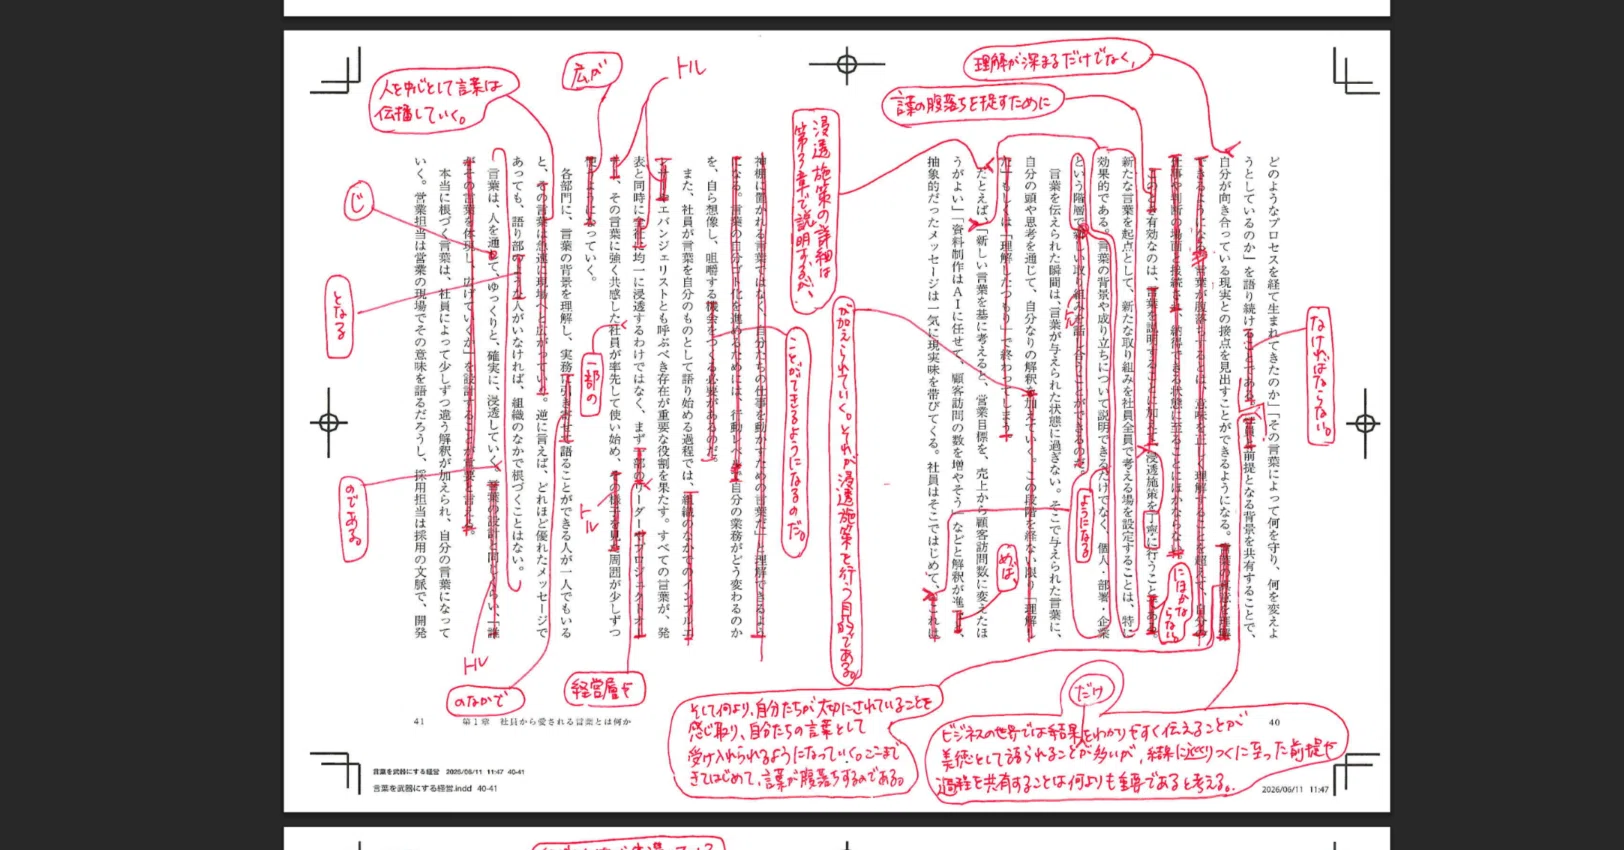 どのようなプロセスを経て生まれてきたのか」「その言葉によって何を守り、何を変えよ
うとしているのか」を語り続けることである。
前提となる背景を共有することで、
自分が向き合っている現実との接点を見出すことができるようになる。
できるようになる。言葉が腹落ちするとは、意味を正しく理解することを超えて、自分の
仕事や判断の場面と接続され、納得できる状態に至ることにほかならない。
このとき有効なのは、言葉を説明することに加えて、浸透施策を丁寧に行うことである。
新たな言葉を起点として、新たな取り組みを社員全員で考える場を設定することは、特に
効果的である。言葉の背景や成り立ちについて説明できるだけでなく、個人・部署・企業
という階層で新しい取り組みを話し合うことができるのだ。
言葉を伝えられた瞬間は、言葉が与えられた状態に過ぎない。そこで与えられた言葉に、
自分の頭や思考を通じて、自分なりの解釈を加えていく。この段階を経ない限り「理解し
た」もしくは「理解したつもり」で終わってしまう。
たとえば、「新しい言葉を基に考えると、営業目標を、売上から顧客訪問数に変えたほ
うがよい」「資料制作はAIに任せて、顧客訪問の数を増やそう」などと解釈が進
抽象的だったメッセージは一気に現実味を帯びてくる。社員はそこではじめて、「これは
40
神棚に置かれる言葉ではなく、自分たちの仕事を動かすための言葉だ」と理解できるよう
になる。言葉の自分ゴト化を進めるためには、行動レベル
自分の業務がどう変わるのか
を、自ら想像し、咀嚼する機会をつくる必要があるのだ。
また、社員が言葉を自分のものとして語り始める過程では、組織のなかでのインフルエ
ンサーやエバンジェリストとも呼ぶべき存在が重要な役割を果たす。すべての言葉が、発
表と同時に全社に均一に浸透するわけではなく、まず一部のリーダーやプロジェクトオー
その言葉に強く共感した社員が率先して使い始め、その様子を見た周囲が少しずつ
使うようになっていく。
各部門に、言葉の背景を理解し、実務に引き寄せて語ることができる人が一人でもいる
と、その言葉は急速に現場へと広がっていく。逆に言えば、どれほど優れたメッセージで
あっても、語り部のような人がいなければ、組織のなかで根づくことはない。
言葉は、人を通して、ゆっくりと、確実に、浸透していく。言葉の設計と同じくらい、「誰
がその言葉を体現し、広げていくか」を設計することが重要と言える。
本当に根づく言葉は、社員によって少しずつ違う解釈が加えられ、自分の言葉になって
いく。営業担当は営業の現場でその意味を語るだろうし、採用担当は採用の文脈で、開発
41　第1章　社員から愛される言葉とは何か
理解が深まるだけでなく、
言葉の腹落ちを促すために
なければならない。
浸透施策の詳細は
第3章で説明するが、
が加えられていく。それが浸透施策を行う目的である。
ようになる
めば、
にほかな
らない。
ことができるようになるのだ。
トル
広が
人を中心として言葉は
伝播していく。
じ
となる
のである。
一部の
トル
トル
のなかで
経営層や
そして何より、自分たちが大切にされていることを
感じ取り、自分たちの言葉として
受け入れられるようになっていく。ここまで
きてはじめて、言葉が腹落ちするのである。
だけ
ビジネスの世界では結果をわかりやすく伝えることが
美徳として語られることが多いが、結果に辿りつくに至った前提や
過程を共有することは何よりも重要であると考える。
言葉を武器にする経営　2026/06/11　11:47　40-41
言葉を武器にする経営.indd　40-41
2026/06/11　11:47